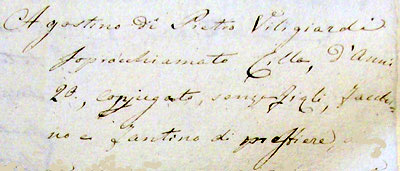 Agostino di Pietro Viligiardi
soprachiamato Cilla, d'Anni
28., conjugato, senza figli, Facchi-
no e fantino di mestiere,